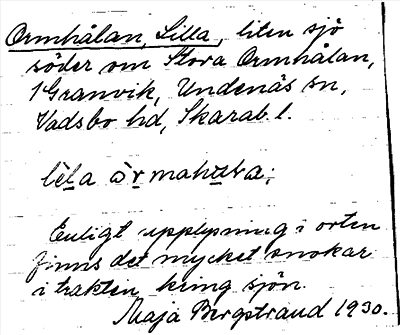 Ormhålan, Lilla, liten sjö
söder om Stora Ormhålan,
Granvik, Undenäs sn,
Vadsbo hd, Skarab. l.
Enligt upplysning i orten
finns det mycket snokar
i trakten kring sjön.
Maja Bergstrand 1930.